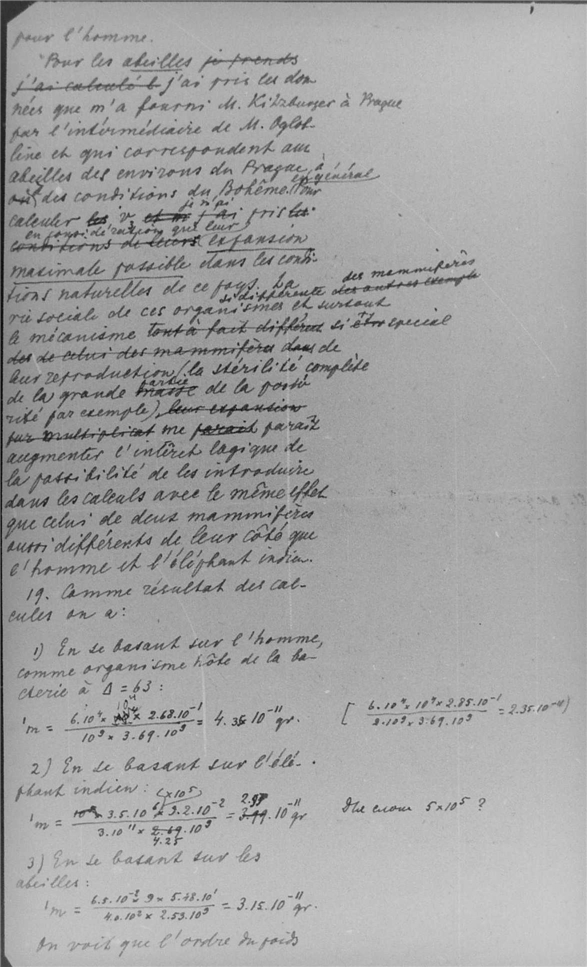 pour l'homme.
Pour les abeilles je prends
j'ai calculé b j'ai pris les don-
nées que m'a fourni M. Kitzburger à Prague
par l'intérmédiaire de M. Oglob-
line et qui correspondent aux
abeilles des environs du Prague, à
des conditions du Bohême en général. Pour
calculer les v et m j'ai pris les
j'ai pris
en considération que leur
conditions de leurs expansion
maximale possible dans les condi-
tions naturelles de ce pays. La
vie sociale de ces organismes et surtout
si différente des autres exemple
des mammifères
le mécanisme tout à fait différent si être special
des de celui des mammifères dans de
leur reproduction (la stérilité complète
de la grande masse partie de la posté-
rité par exemple) leur expansion
par multiplicat me parait parait
augmenter l'intéret logique de
la possibilité de les introduire
dans les calculs avec le même effet
que celui de deux mammifères
aussi différents de leur côté que
l'homme et l'éléphant indien.
19. Comme résultat des cal-
cules on a:
1) En se basant sur l'homme,
comme organisme hôte de la ba-
cterie à Δ = 63:
'm = 6.10⁴ × 10⁴ × 2.68.10⁻¹ / 10⁹ × 3.69.10⁹ = 4.35 10⁻¹¹ gr.
[ 6.10⁴ × 10⁴ × 2.85.10⁻¹ / 2.10⁹ × 3.69.10⁹ = 2.35.10⁻¹¹)
2) En se basant sur l'élé-
phant indien:
(×10⁵)
'm = 3.5.10⁶ × 3.2.10⁻² / 3.10¹¹ × 2.69.10⁹ = 3.99.10⁻¹¹ gr
4.25
5×10⁵ ?
3) En se basant sur les
abeilles:
'm = 6.5.10⁻² × 9 × 5.48.10¹ / 4.0.10² × 2.53.10⁹ = 3.15.10⁻¹¹ gr.
On voit que l'ordre du poids